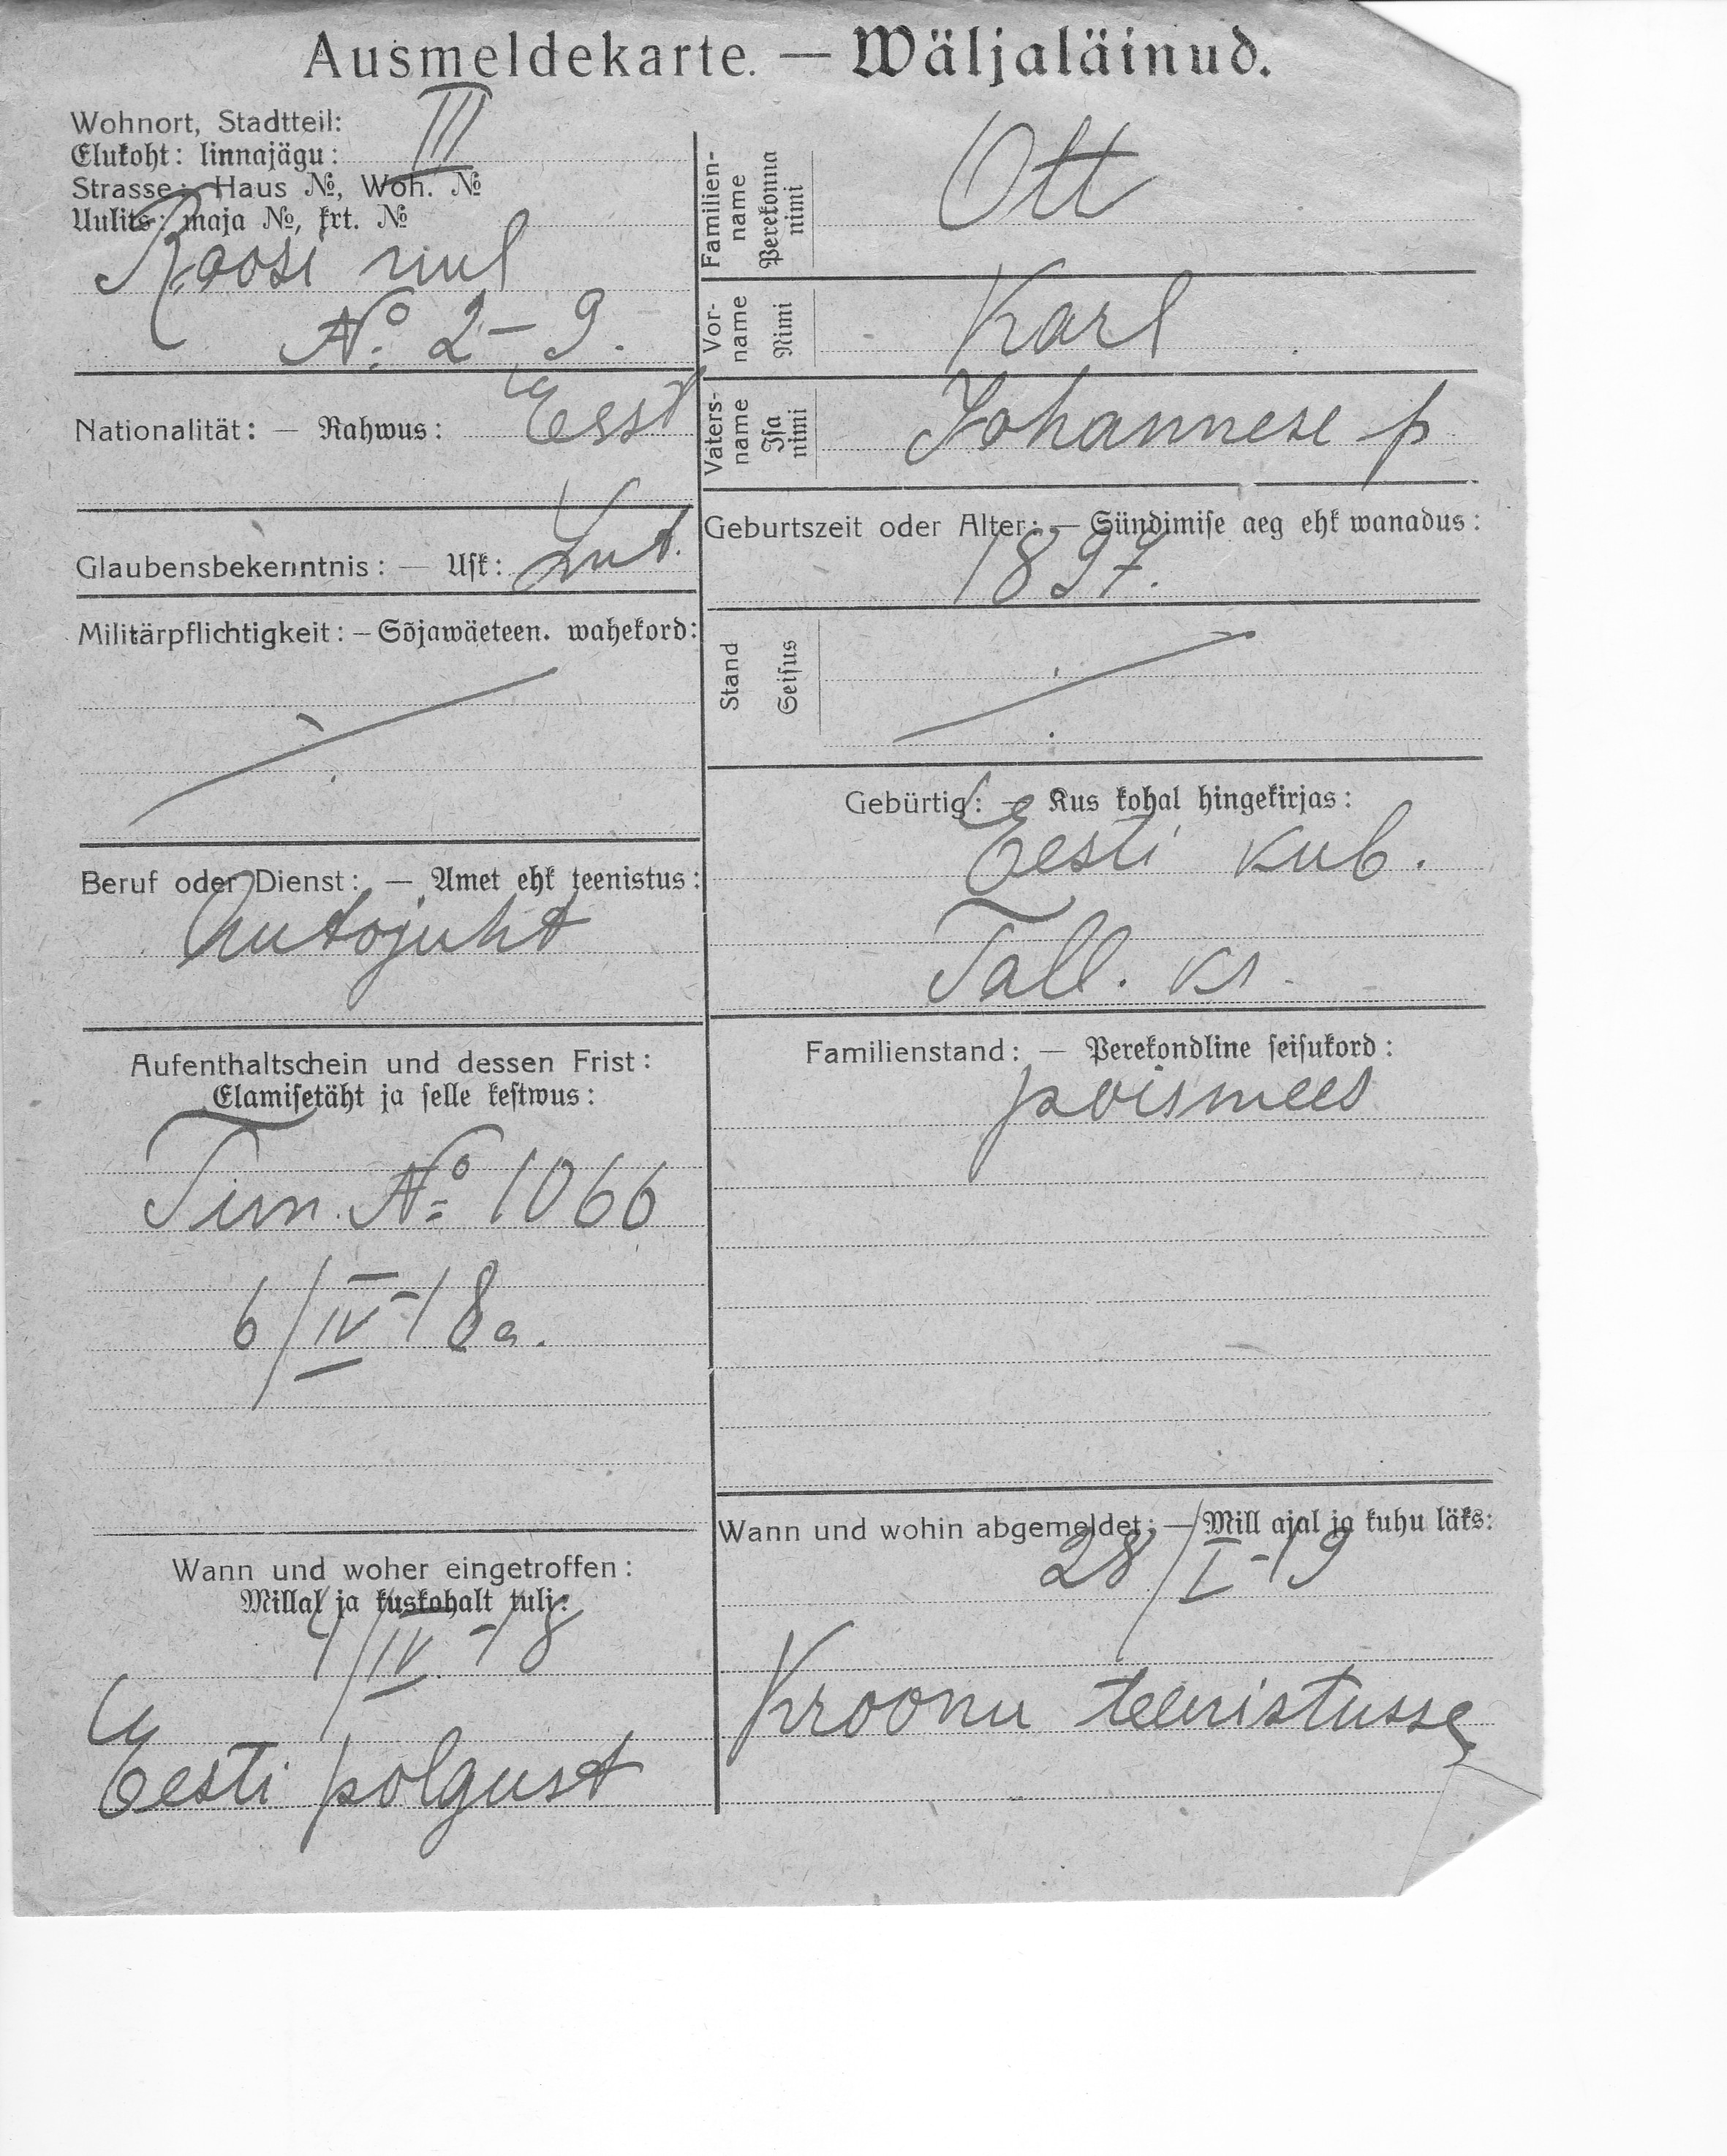 Ausmeldekarte. — Wäljaläinud.
Wohnort, Stadtteil:
Elukoht: linnajägu: III
Strasse: Haus №, Woh. №
Uulits: maja №, krt. №
Roosi
№ 2-9.
Nationalität: — Rahwus: Eest
Glaubensbekenntnis: — Usk: Lut.
Militärpflichtigkeit: — Sõjawäeteen. wahekord:
Beruf oder Dienst: — Amet ehk teenistus:
Autojuht
Aufenthaltschein und dessen Frist:
Elamisetäht ja selle kestwus:
Tun. № 1066
6/IV-18 a.
Wann und woher eingetroffen:
Millal ja kuskohalt tuli:
1/IV-18
Eesti polgust
Familien-
name
Perekonna
nimi
Ott
Vor-
name
Nimi
Karl
Vaters-
name
Isa
nimi
Johannese p
Geburtszeit oder Alter: — Sündimise aeg ehk wanadus:
1897.
Stand
Seisus
Gebürtig: — Kus kohal hingekirjas:
Eesti kub.
Tall. kr.
Familienstand: — Perekondline seisukord:
poismees
Wann und wohin abgemeldet: — Mill ajal ja kuhu läks:
28/I-19
Kroonu teenistusse